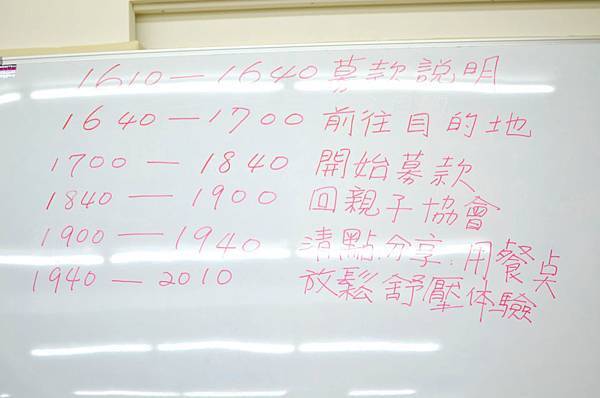 1610—1640 募款說明
1640—1700 前往目的地
1700—1840 開始募款
1840—1900 回親子協會
1900—1940 清點分享.用餐桌
1940—2010 放鬆舒壓体驗